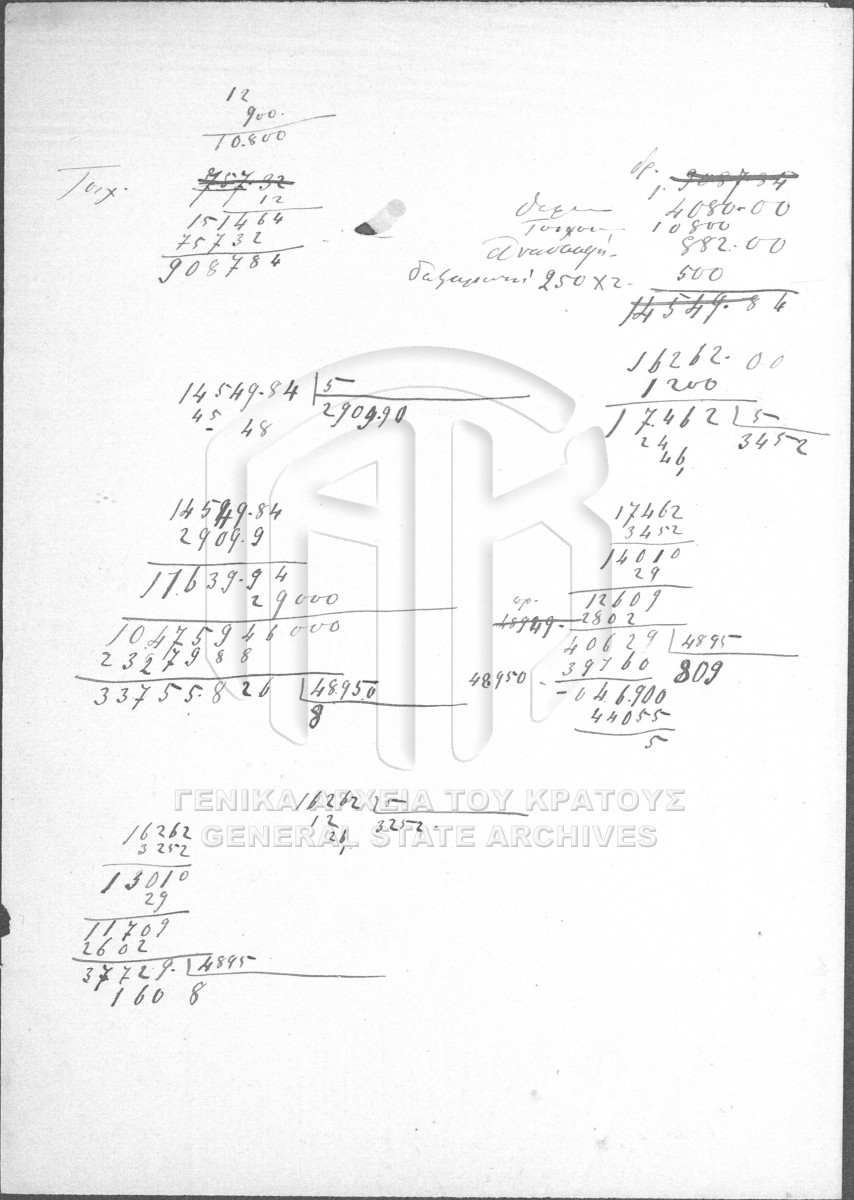 12
900.
10.800
Τοιχ.
757.32
12
151464
75732
908784
δρ.
1. 9087.84
4080-00
10800
882-00
250 Χ 2.
500
14549.84
16262. 00
1200
17.462 5
24 3452
46
14549.84 5
45 2909.90
48
14549.84
2909.9
11.639.94
29000
10.475946000
2327988
33755.826 48950
8
17462
3452
14010
29
12609
48949- 2802
40629 4895
48950 - 39160 809
-046.900
44055
5
ΓΕΝΙΚΑ ΑΡΧΕΙΑ ΤΟΥ ΚΡΑΤΟΥΣ
GENERAL STATE ARCHIVES
16262 5
12 3252.
26
16262
3252
13010
29
11709
2602
37729. 4895
160 8